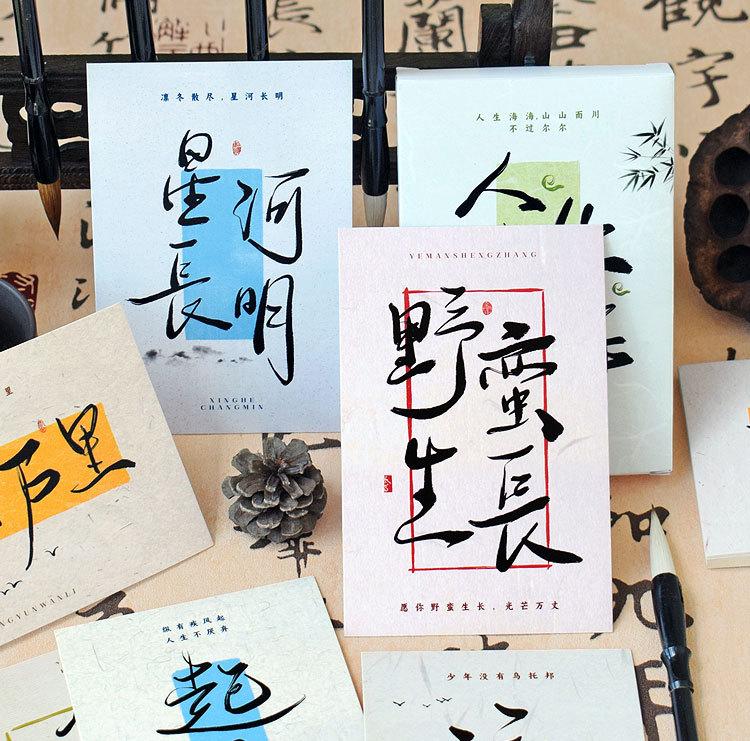 凛冬散尽,星河长明
星河
長明
XINGHE
CHANGMIN
人生海海,山山而川
不过尔尔
人生
YEMANSHENGZHANG
野蛮
生長
愿你野蛮生长,光芒万丈
里
万里
GYUNWANLI
纵有疾风起
人生不厌弃
起
少年没有乌托邦
蘭
觀
字
如